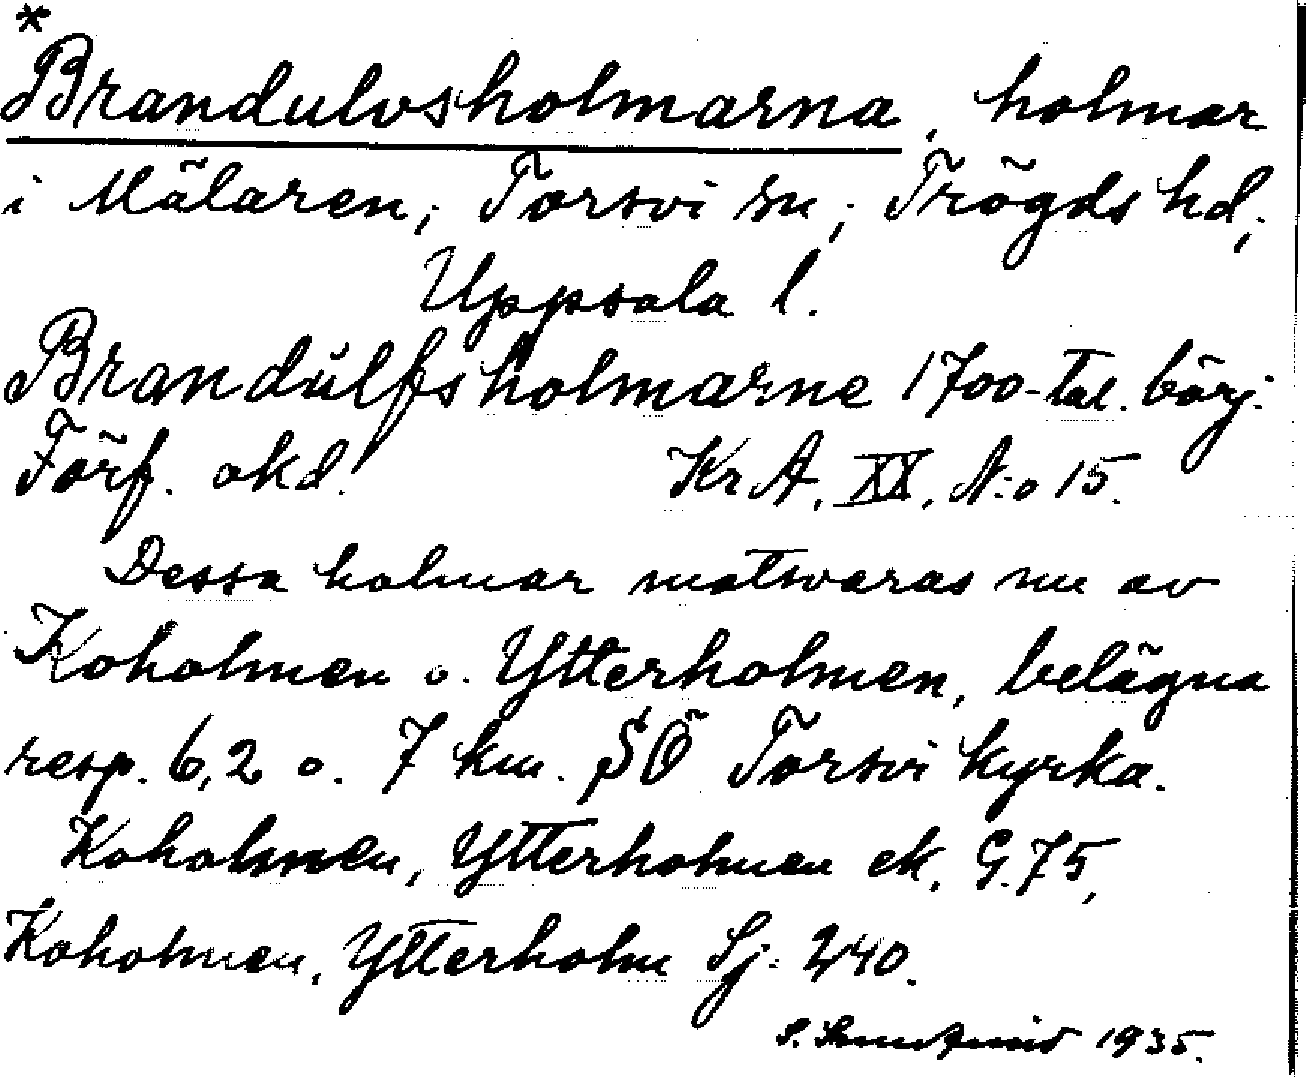 *
Brandulvsholmarna, holmar
i Mälaren, Torsvi sn, Trögds hd,
Uppsala l.
Brandŭlfsholmarne 1700-tal. börj.
Förf. okd. Kr A. XX, N:o 15.
Dessa holmar motsvaras nu av
Koholmen o. Ytterholmen, belägna
resp. 6,2 o. 7 km. SÖ Torsvi kyrka.
Koholmen, Ytterholmen ek. G. 75,
Koholmen, Ytterholm Sj: 240.
S. 1935.